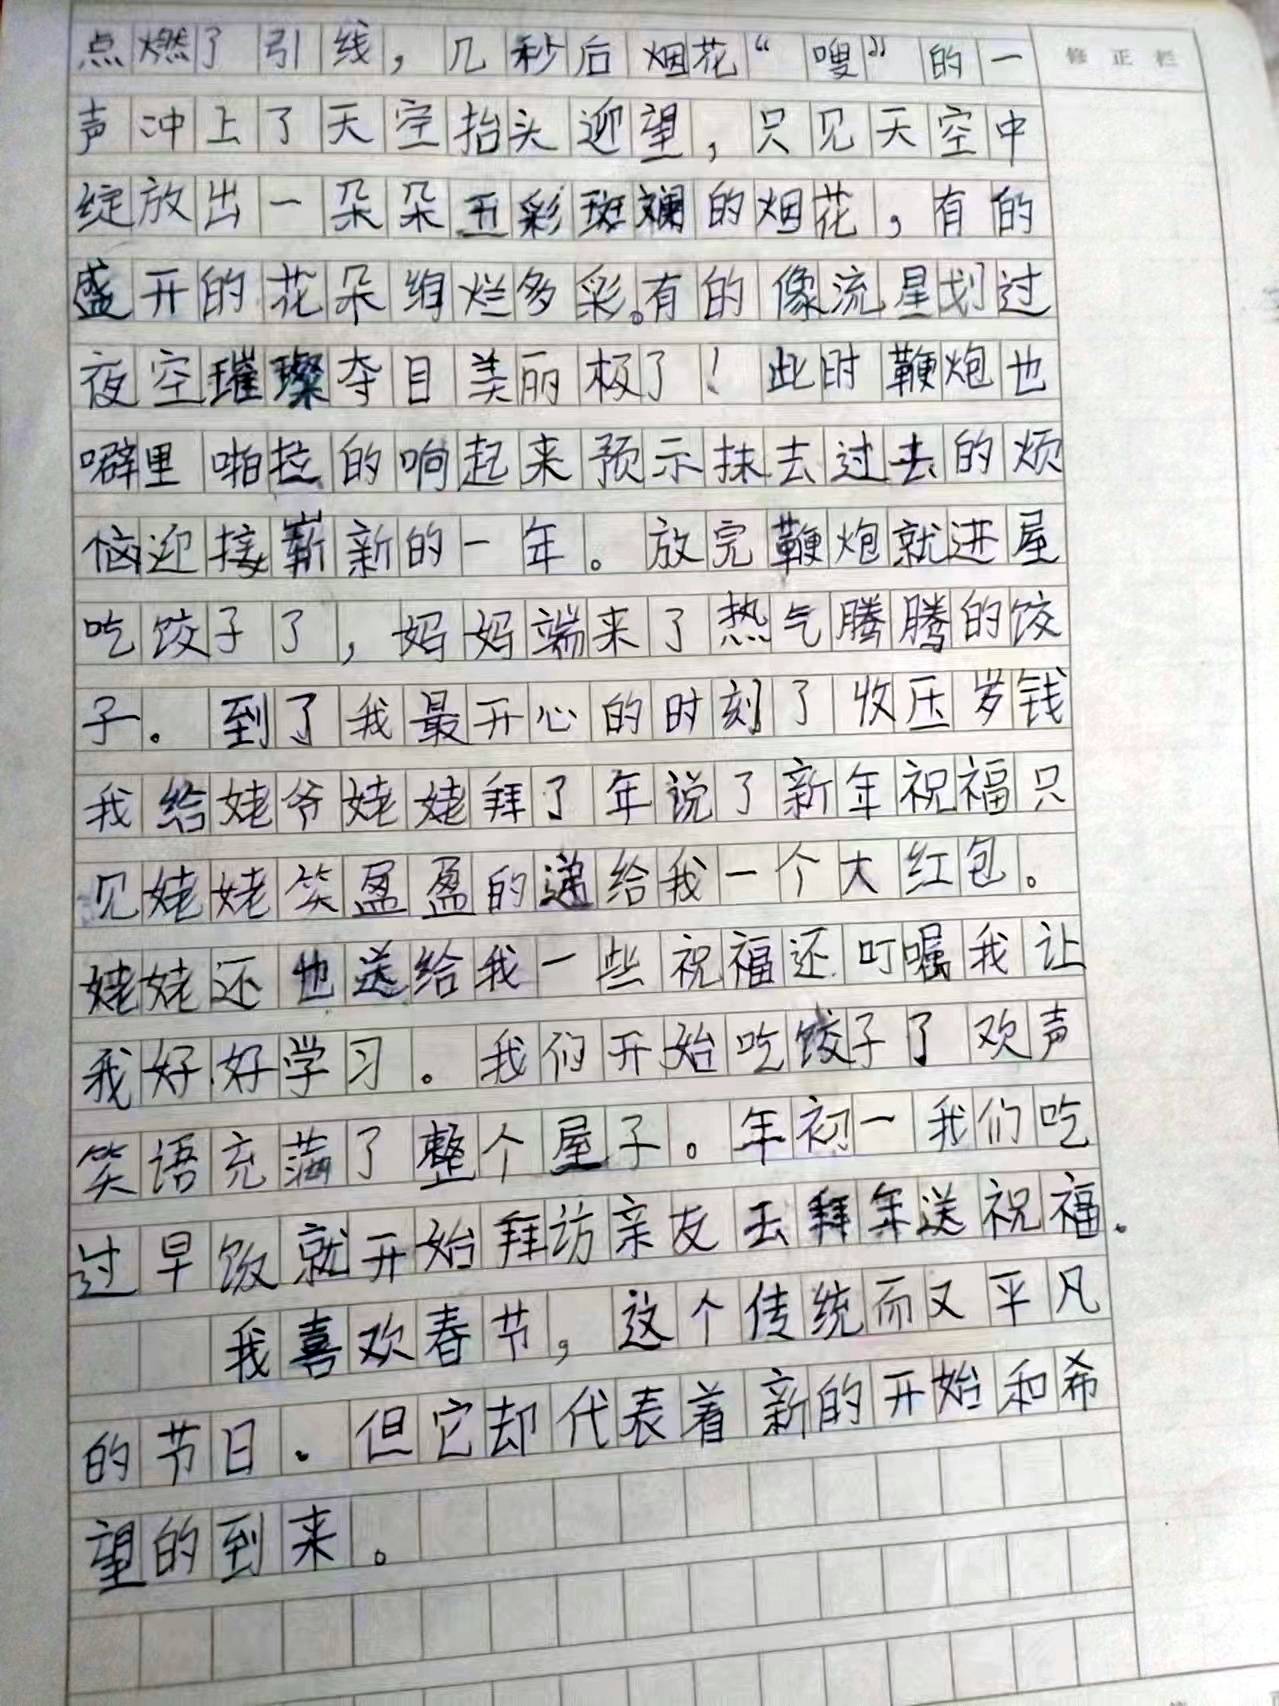 点燃了引线，几秒后烟花“嗖”的一
修正栏
声冲上了天空抬头迎望，只见天空中
绽放出一朵朵五彩斑斓的烟花，有的
盛开的花朵绚烂多彩。有的像流星划过
夜空璀璨夺目美丽极了！此时鞭炮也
噼里啪拉的响起来预示抹去过去的烦
恼迎接崭新的一年。放完鞭炮就进屋
吃饺子了，妈妈端来了热气腾腾的饺
子。到了我最开心的时刻了收压岁钱
我给姥爷姥姥拜了年说了新年祝福只
见姥姥笑盈盈的递给我一个大红包。
姥姥还也送给我一些祝福还叮嘱我让
我好好学习。我们开始吃饺子了欢声
笑语充满了整个屋子。年初一我们吃
过早饭就开始拜访亲友去拜年送祝福。
我喜欢春节，这个传统而又平凡
的节日。但它却代表着新的开始和希
望的到来。